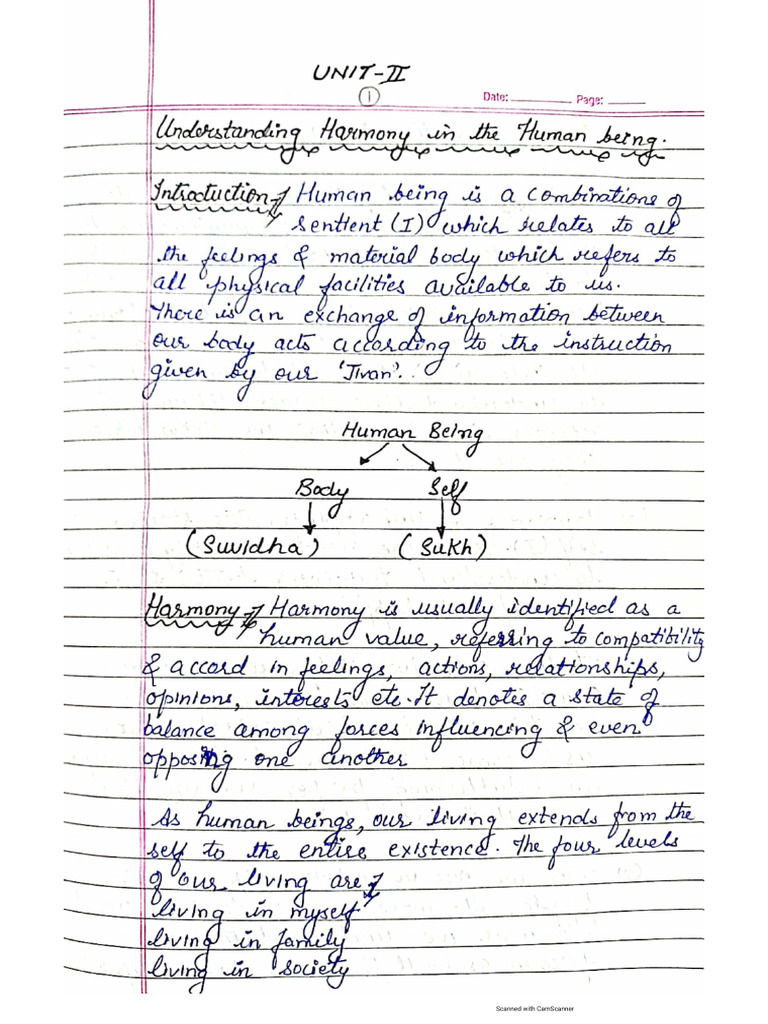 UNIT-II
1
Date: Page:
Understanding Harmony in the Human being.
Introduction Human being is a combinations of
sentient (I) which relates to all
the feelings & material body which refers to
all physical facilities available to us.
There is an exchange of information between
our body acts according to the instruction
given by our 'Jivan'.
Human Being
Body Self
(Suvidha) (Sukh)
Harmony Harmony is usually identified as a
human value, referring to compatibility
& accord in feelings, actions, relationships,
opinions, interests etc. It denotes a state of
balance among forces influencing & even
opposing one another
As human beings, our living extends from the
self to the entire existence. The four levels
of our living are
living in myself
living in family
living in society
Scanned with CamScanner